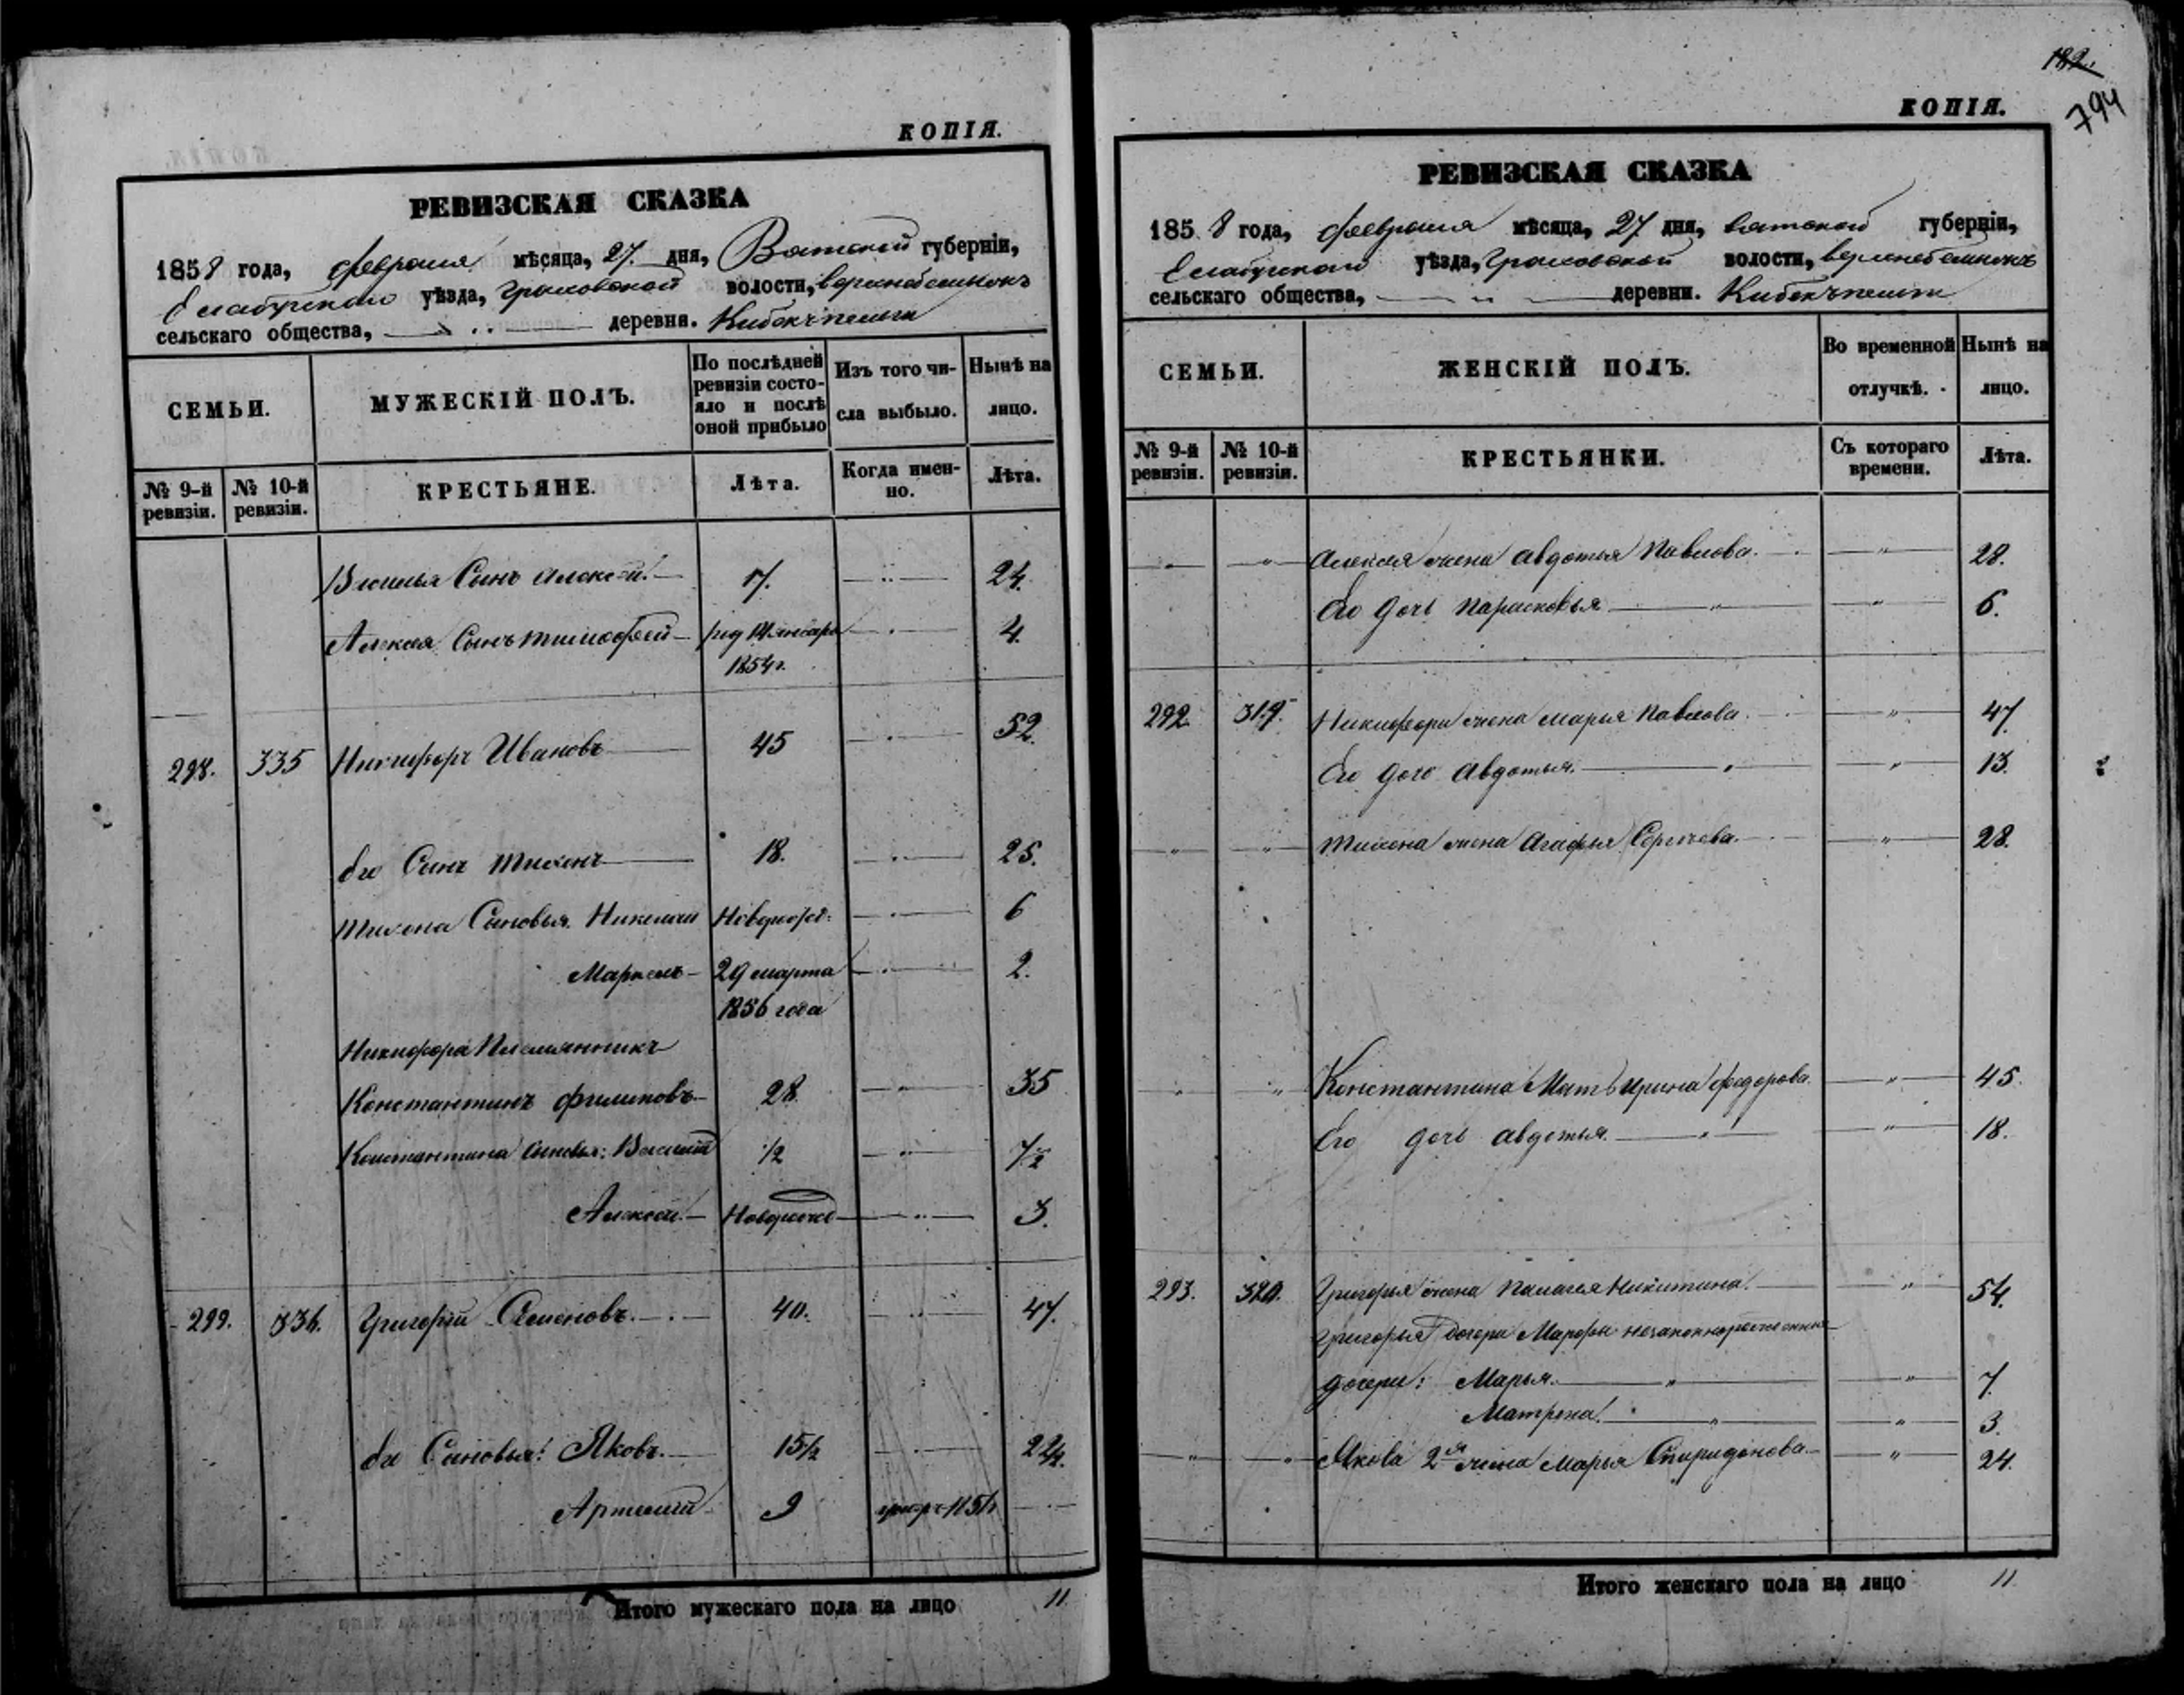 КОПІЯ.
РЕВИЗСКАЯ СКАЗКА
1858 года, февраля мѣсяца, 27 дня, Вятской губерніи,
Елабужскаго уѣзда, Граховской волости,
сельскаго общества, деревни.
СЕМЬИ.
МУЖЕСКІЙ ПОЛЪ.
По послѣдней ревизіи состояло и послѣ оной прибыло
Изъ того числа выбыло.
Нынѣ на лицо.
№ 9-й ревизіи.
№ 10-й ревизіи.
КРЕСТЬЯНЕ.
Лѣта.
Когда именно.
Лѣта.
Василья Сынъ Алексѣй 17. 24.
Алексѣя Сынъ Тимофей 4.
1854г.
298. 335 Никифоръ Ивановъ 45 52.
Его Сынъ Тихонъ 18. 25.
Тихона Сыновья Николай Новорож: 6
Маркелъ 29 марта 2.
1856 года
Никифора Племянникъ
Константинъ Филиповъ 28 35
Константина Сыновья: Василій 1/2 7 1/2
Алексѣй Новорожд 3.
299. 336. Григорій Семеновъ 40. 47.
Его Сыновья: Яковъ 15 1/2 22 1/2
Артемій 9
Итого мужескаго пола на лицо 11
182.
794
КОПІЯ.
РЕВИЗСКАЯ СКАЗКА
1858 года, февраля мѣсяца, 27 дня, Вятской губерніи,
Елабужскаго уѣзда, Граховской волости,
сельскаго общества, деревни.
СЕМЬИ.
ЖЕНСКІЙ ПОЛЪ.
Во временной отлучкѣ.
Нынѣ на лицо.
№ 9-й ревизіи.
№ 10-й ревизіи.
КРЕСТЬЯНКИ.
Съ котораго времени.
Лѣта.
Алексѣя жена Авдотья Павлова 28.
Его дочь Парасковья 6.
292. 319. Никифора жена Марья Павлова 47
Его дочь Авдотья 13.
Тихона жена Агафья Сергѣева 28.
Константина Мать Ирина Федорова 45.
Его дочь Авдотья 18.
293. 320. Григорья жена Палагея Никитина 54.
Григорья дочери Марфы незаконнорожденныя
дочери: Марья 7
Матрена 3.
Якова 2я жена Марья Спиридонова 24.
Итого женскаго пола на лицо 11